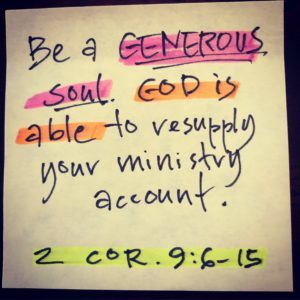 Be a GENEROUS
soul. GOD is
able to resupply
your ministry
account.
2 COR. 9:6-15